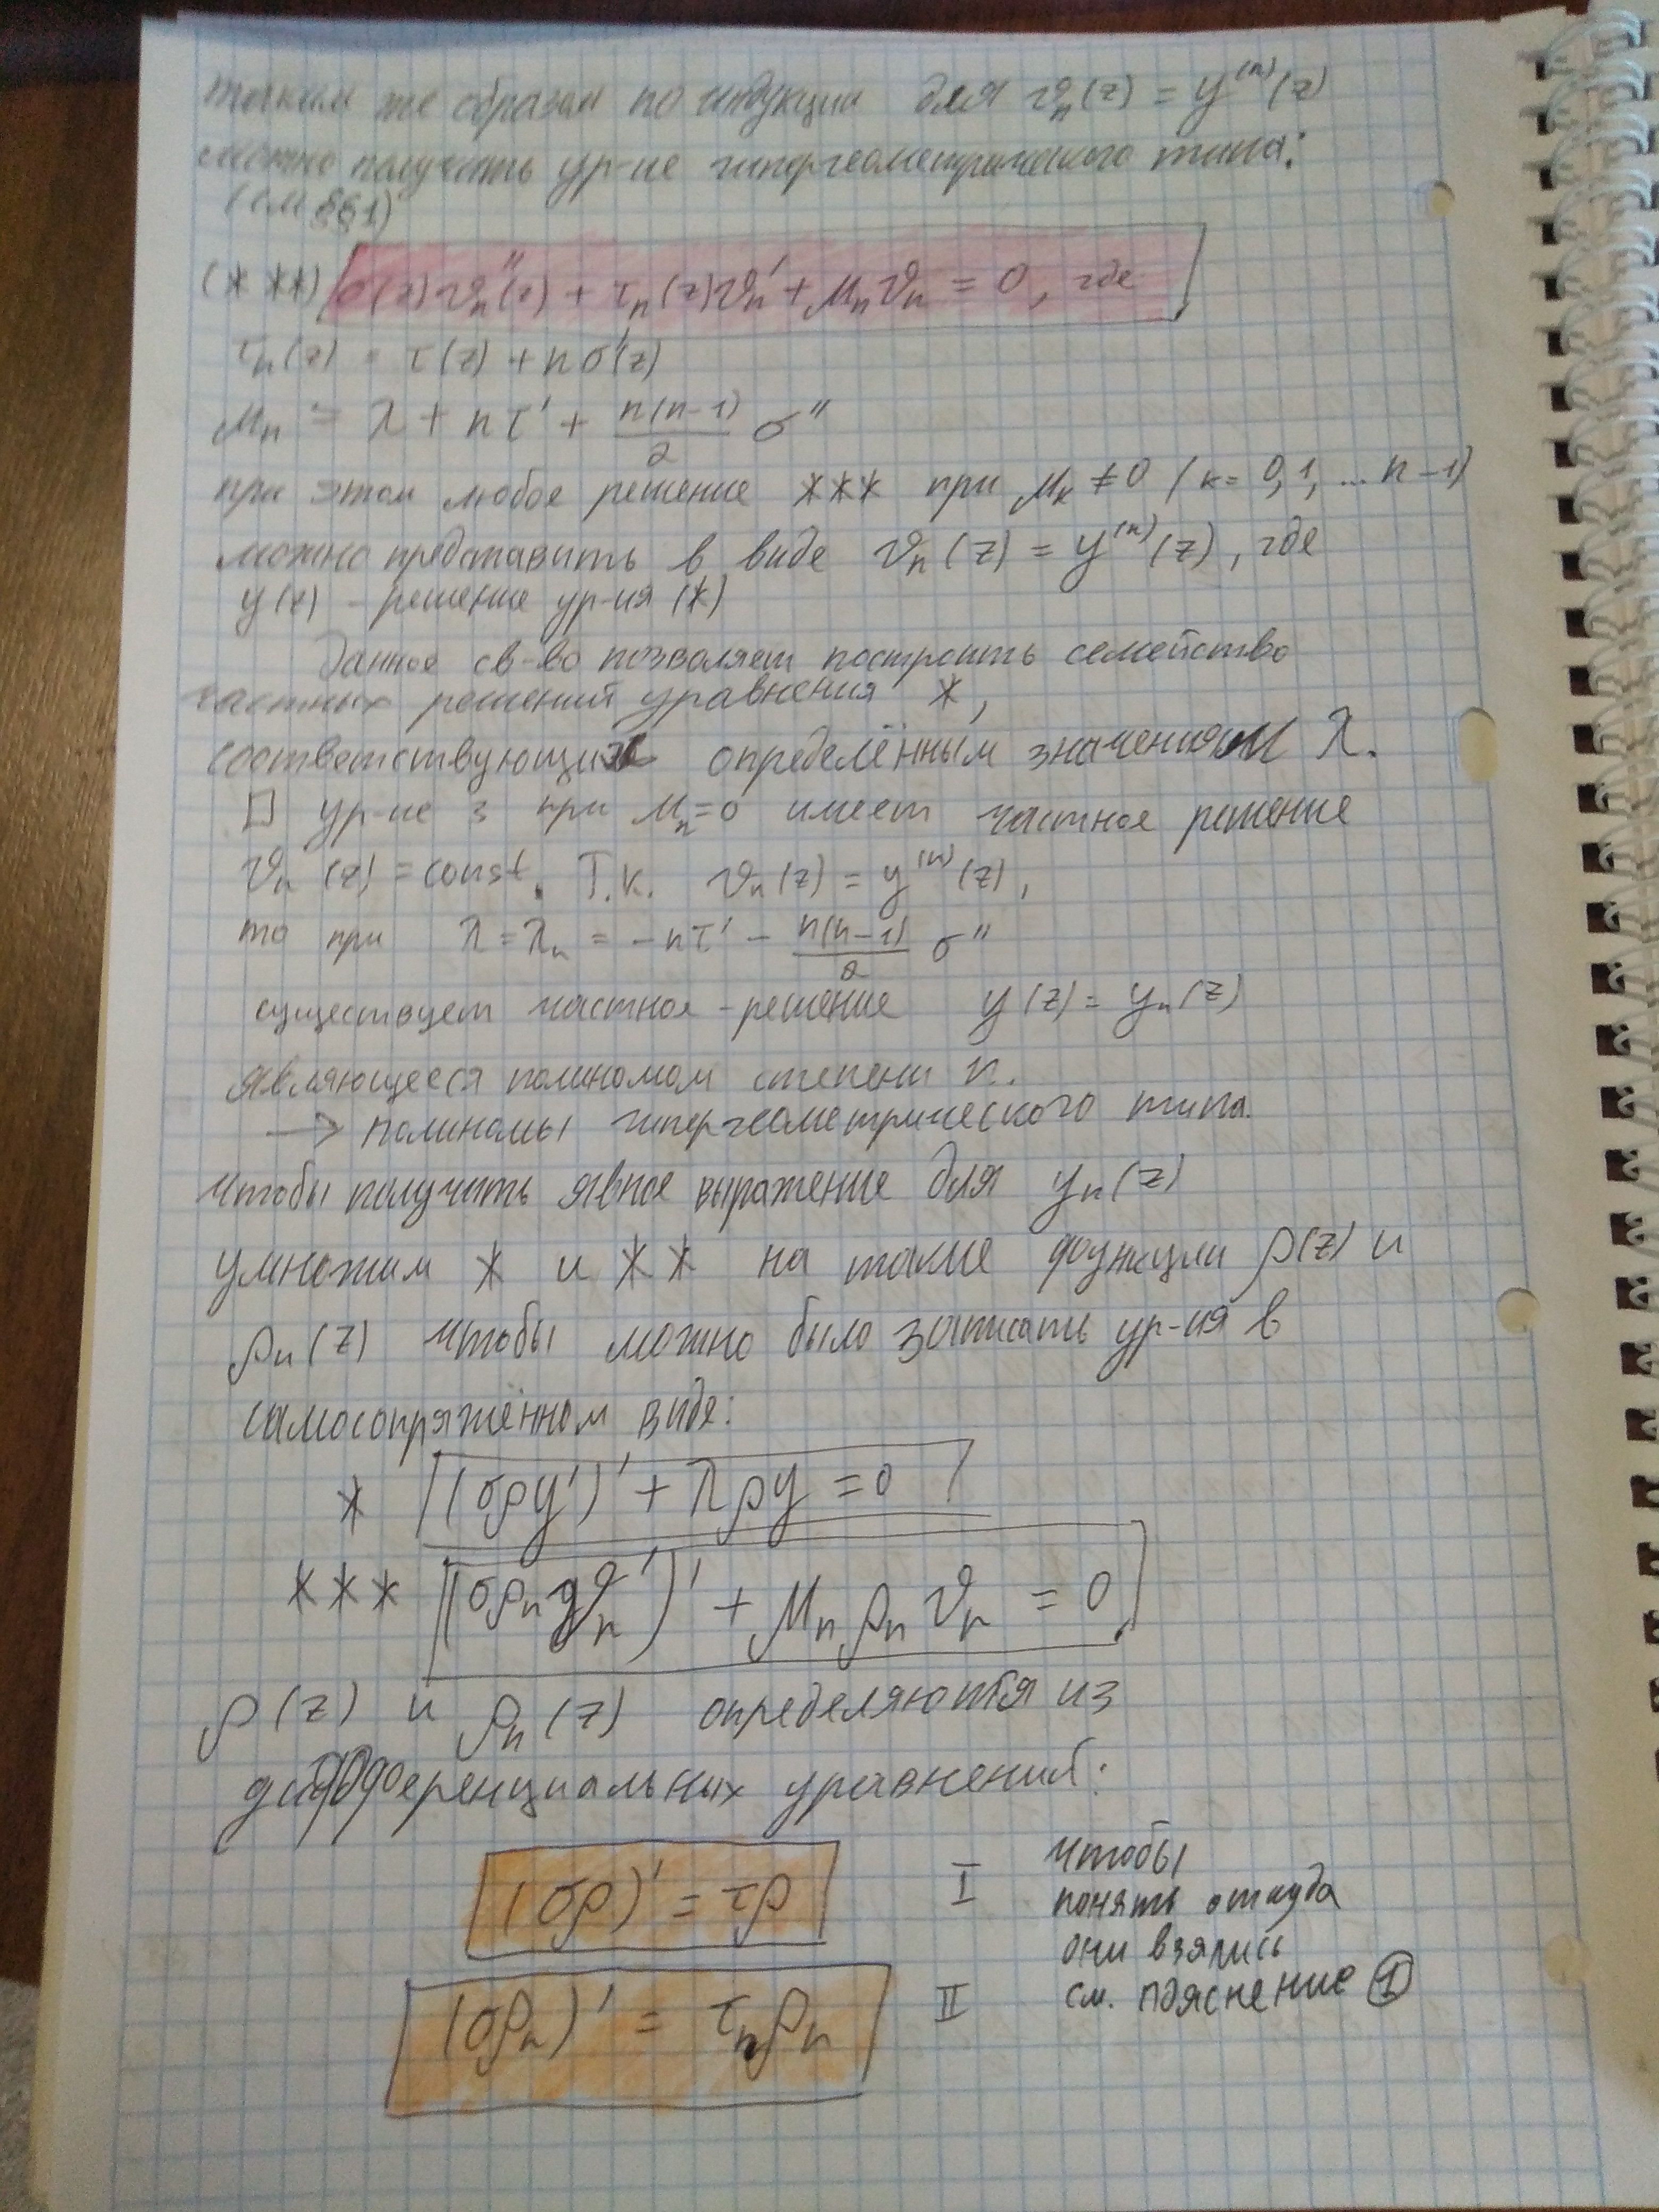 таким же образом по индукции для 𝜗ₙ(z) = y⁽ⁿ⁾(z)
можно получить ур-ие гипергеометрического типа:
(см §1)
(***) σ(z)𝜗ₙ''(z) + τₙ(z)𝜗ₙ' + μₙ𝜗ₙ = 0, где
τₙ(z) = τ(z) + nσ'(z)
μₙ = λ + nτ' + n(n-1)/2 σ''
при этом любое решение *** при μₖ ≠ 0 (к = 0,1, ... n-1)
можно представить в виде 𝜗ₙ(z) = y⁽ⁿ⁾(z), где
y(z) - решение ур-ия (*)
Данное св-во позволяет построить семейство
частных решений уравнения *,
соответствующих определённым значениям λ.
□ ур-ие 3 при μₙ=0 имеет частное решение
𝜗ₙ(z) = const. Т.к. 𝜗ₙ(z) = y⁽ⁿ⁾(z),
то при λ = λₙ = -nτ' - n(n-1)/2 σ''
существует частное-решение y(z) = yₙ(z)
являющееся полиномом степени n.
→ полиномы гипергеометрического типа.
Чтобы получить явное выражение для yₙ(z)
умножим * и ** на такие функции ρ(z) и
ρₙ(z) чтобы можно было записать ур-ия в
самосопряжённом виде:
* (σρy')' + λρy = 0
*** (σρₙ𝜗ₙ')' + μₙρₙ𝜗ₙ = 0
ρ(z) и ρₙ(z) определяются из
дифференциальных уравнений:
(σρ)' = τρ I
(σρₙ)' = τₙρₙ II
Чтобы
понять откуда
они взялись
см. пояснение ①